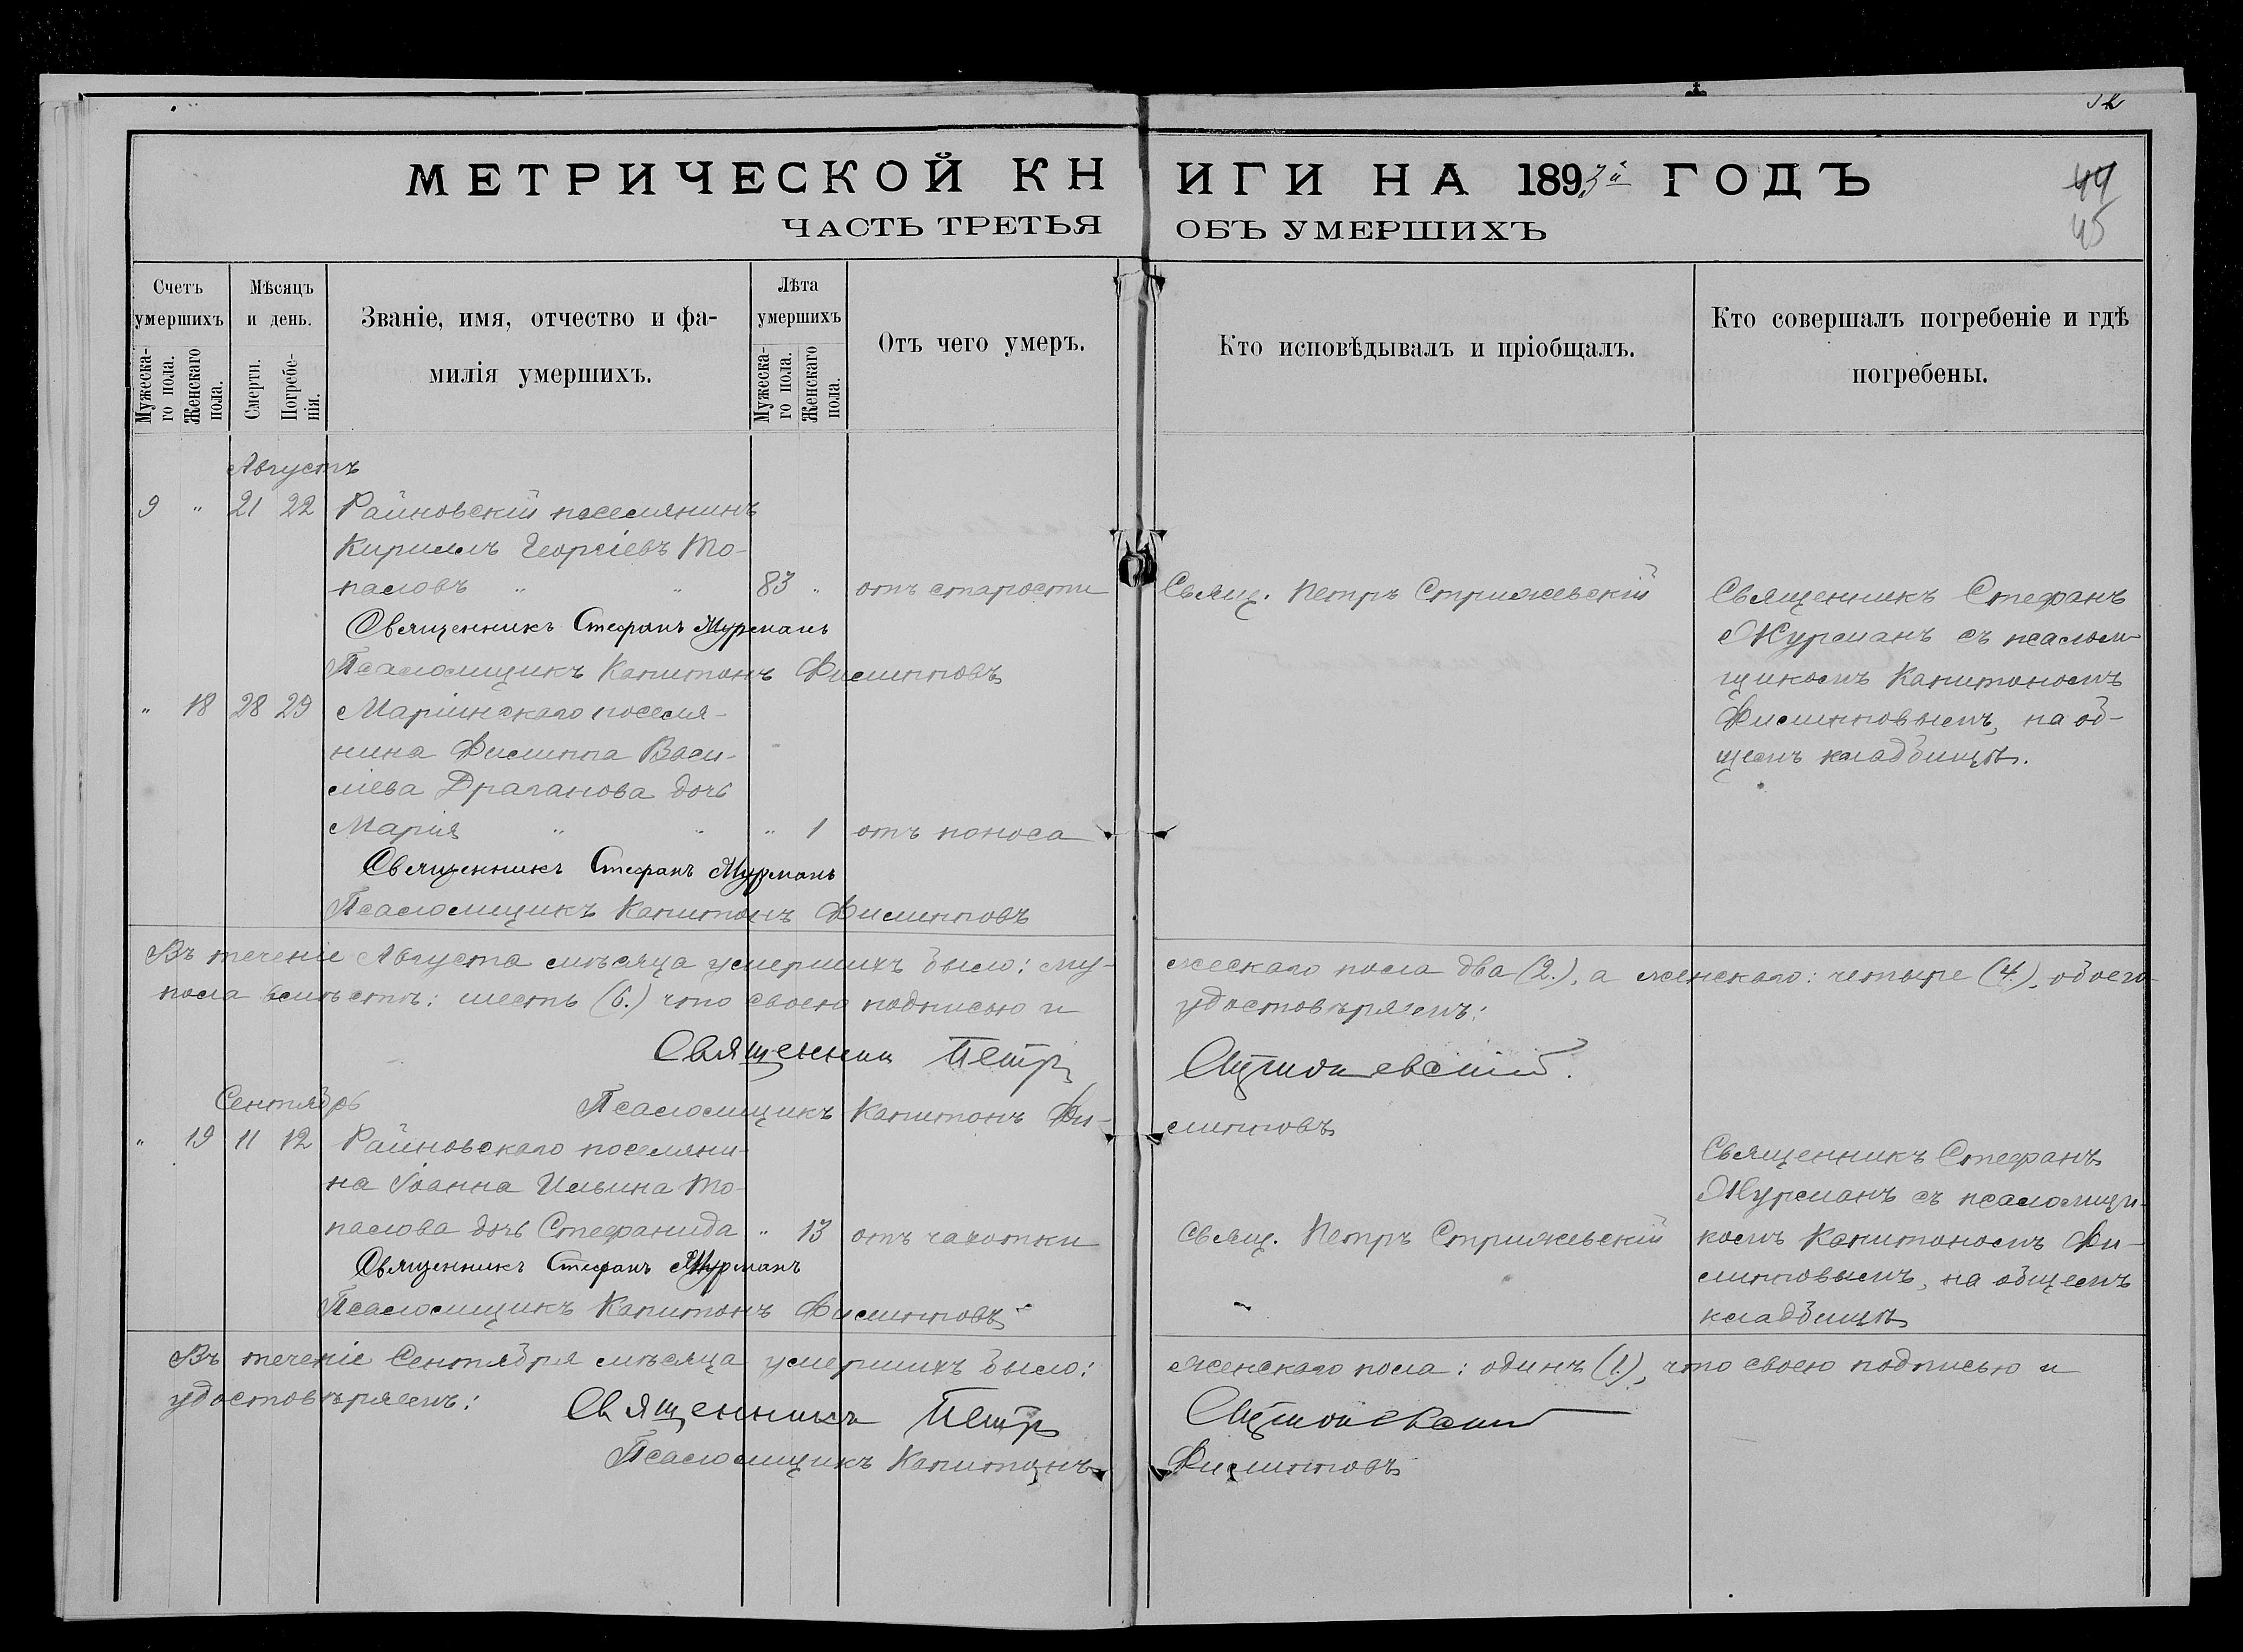 МЕТРИЧЕСКОЙ КНИГИ НА 1893й ГОДЪ
ЧАСТЬ ТРЕТЬЯ ОБЪ УМЕРШИХЪ
44
45
Счетъ умершихъ
Мужеска-
го пола.
Женскаго
пола.
Мѣсяцъ
и день.
Смерти.
Погребе-
нія.
Званіе, имя, отчество и фа-
милія умершихъ.
Лѣта
умершихъ
Мужеска-
го пола.
Женскаго
пола.
Отъ чего умеръ.
Кто исповѣдывалъ и пріобщалъ.
Кто совершалъ погребеніе и гдѣ
погребены.
Августъ
9 " 21 22 Райновскій поселянинъ
Кириллъ Георгіевъ То-
пасловъ " " 83 " отъ старости
Свящ. Петръ Стрижевскій
Священникъ Стефанъ
Журманъ съ псалом-
щикомъ Капитономъ
Филипповымъ, на об-
щемъ кладбищѣ.
Священникъ Стефанъ Журманъ
Псаломщикъ Капитонъ Филипповъ
" 18 28 29 Маріинскаго поселя-
нина Филиппа Васи-
лiева Драганова дочь
Марія " " " 1 отъ поноса
Священникъ Стефанъ Журманъ
Псаломщикъ Капитонъ Филипповъ
Въ теченіе Августа мѣсяца умершихъ было: му-
жескаго пола два (2.), а женскаго: четыре (4.), обоего
пола вмѣстѣ: шесть (6.) что своею подписью и
удостовѣряемъ:
Священник Петр Стрижевский.
Псаломщикъ Капитонъ Фи-
липповъ
Сентябрь
" 19 11 12 Райновскаго поселяни-
на Іоанна Ильина То-
паслова дочь Стефанида " 13 отъ чахотки
Свящ. Петръ Стрижевскій
Священникъ Стефанъ
Журманъ съ псаломщи-
комъ Капитономъ Фи-
липповымъ, на общемъ
кладбищѣ
Священникъ Стефанъ Журманъ
Псаломщикъ Капитонъ Филипповъ
Въ теченіе Сентября мѣсяца умершихъ было:
женскаго пола: одинъ (1.), что своею подписью и
удостовѣряемъ:
Священникъ Петръ Стрижевский
Псаломщикъ Капитонъ
Филипповъ